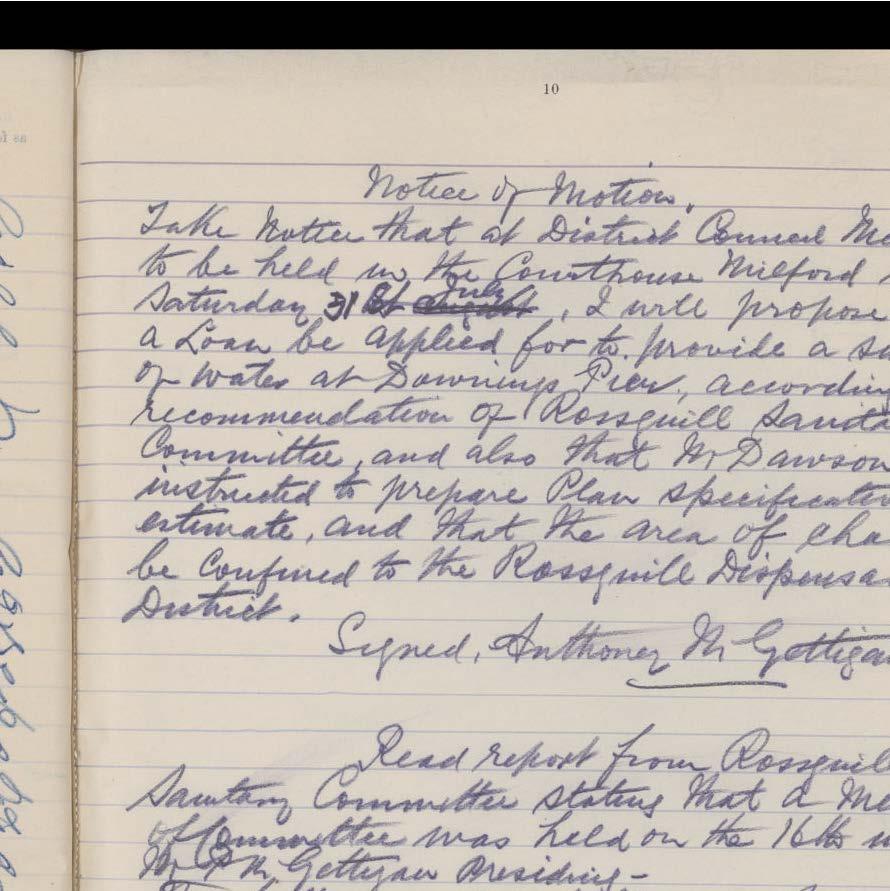 10
Notice of Motion.
Take Notice that at District Council Me
to be held in the Courthouse Milford
Saturday 31st July, I will propose
a Loan be applied for to provide a su
of water at Downings Pier, according
recommendation of Rossguill Sanita
Committee, and also that Mr Dawson
instructed to prepare Plan specificatio
estimate, and that the area of cha
be confined to the Rossguill Dispensa
District.
Signed, Anthoney McGettigan
Read report from Rossguill
Sanitary Committee stating that a Me
of Committee was held on the 16th
Mr P McGettigan Presiding -